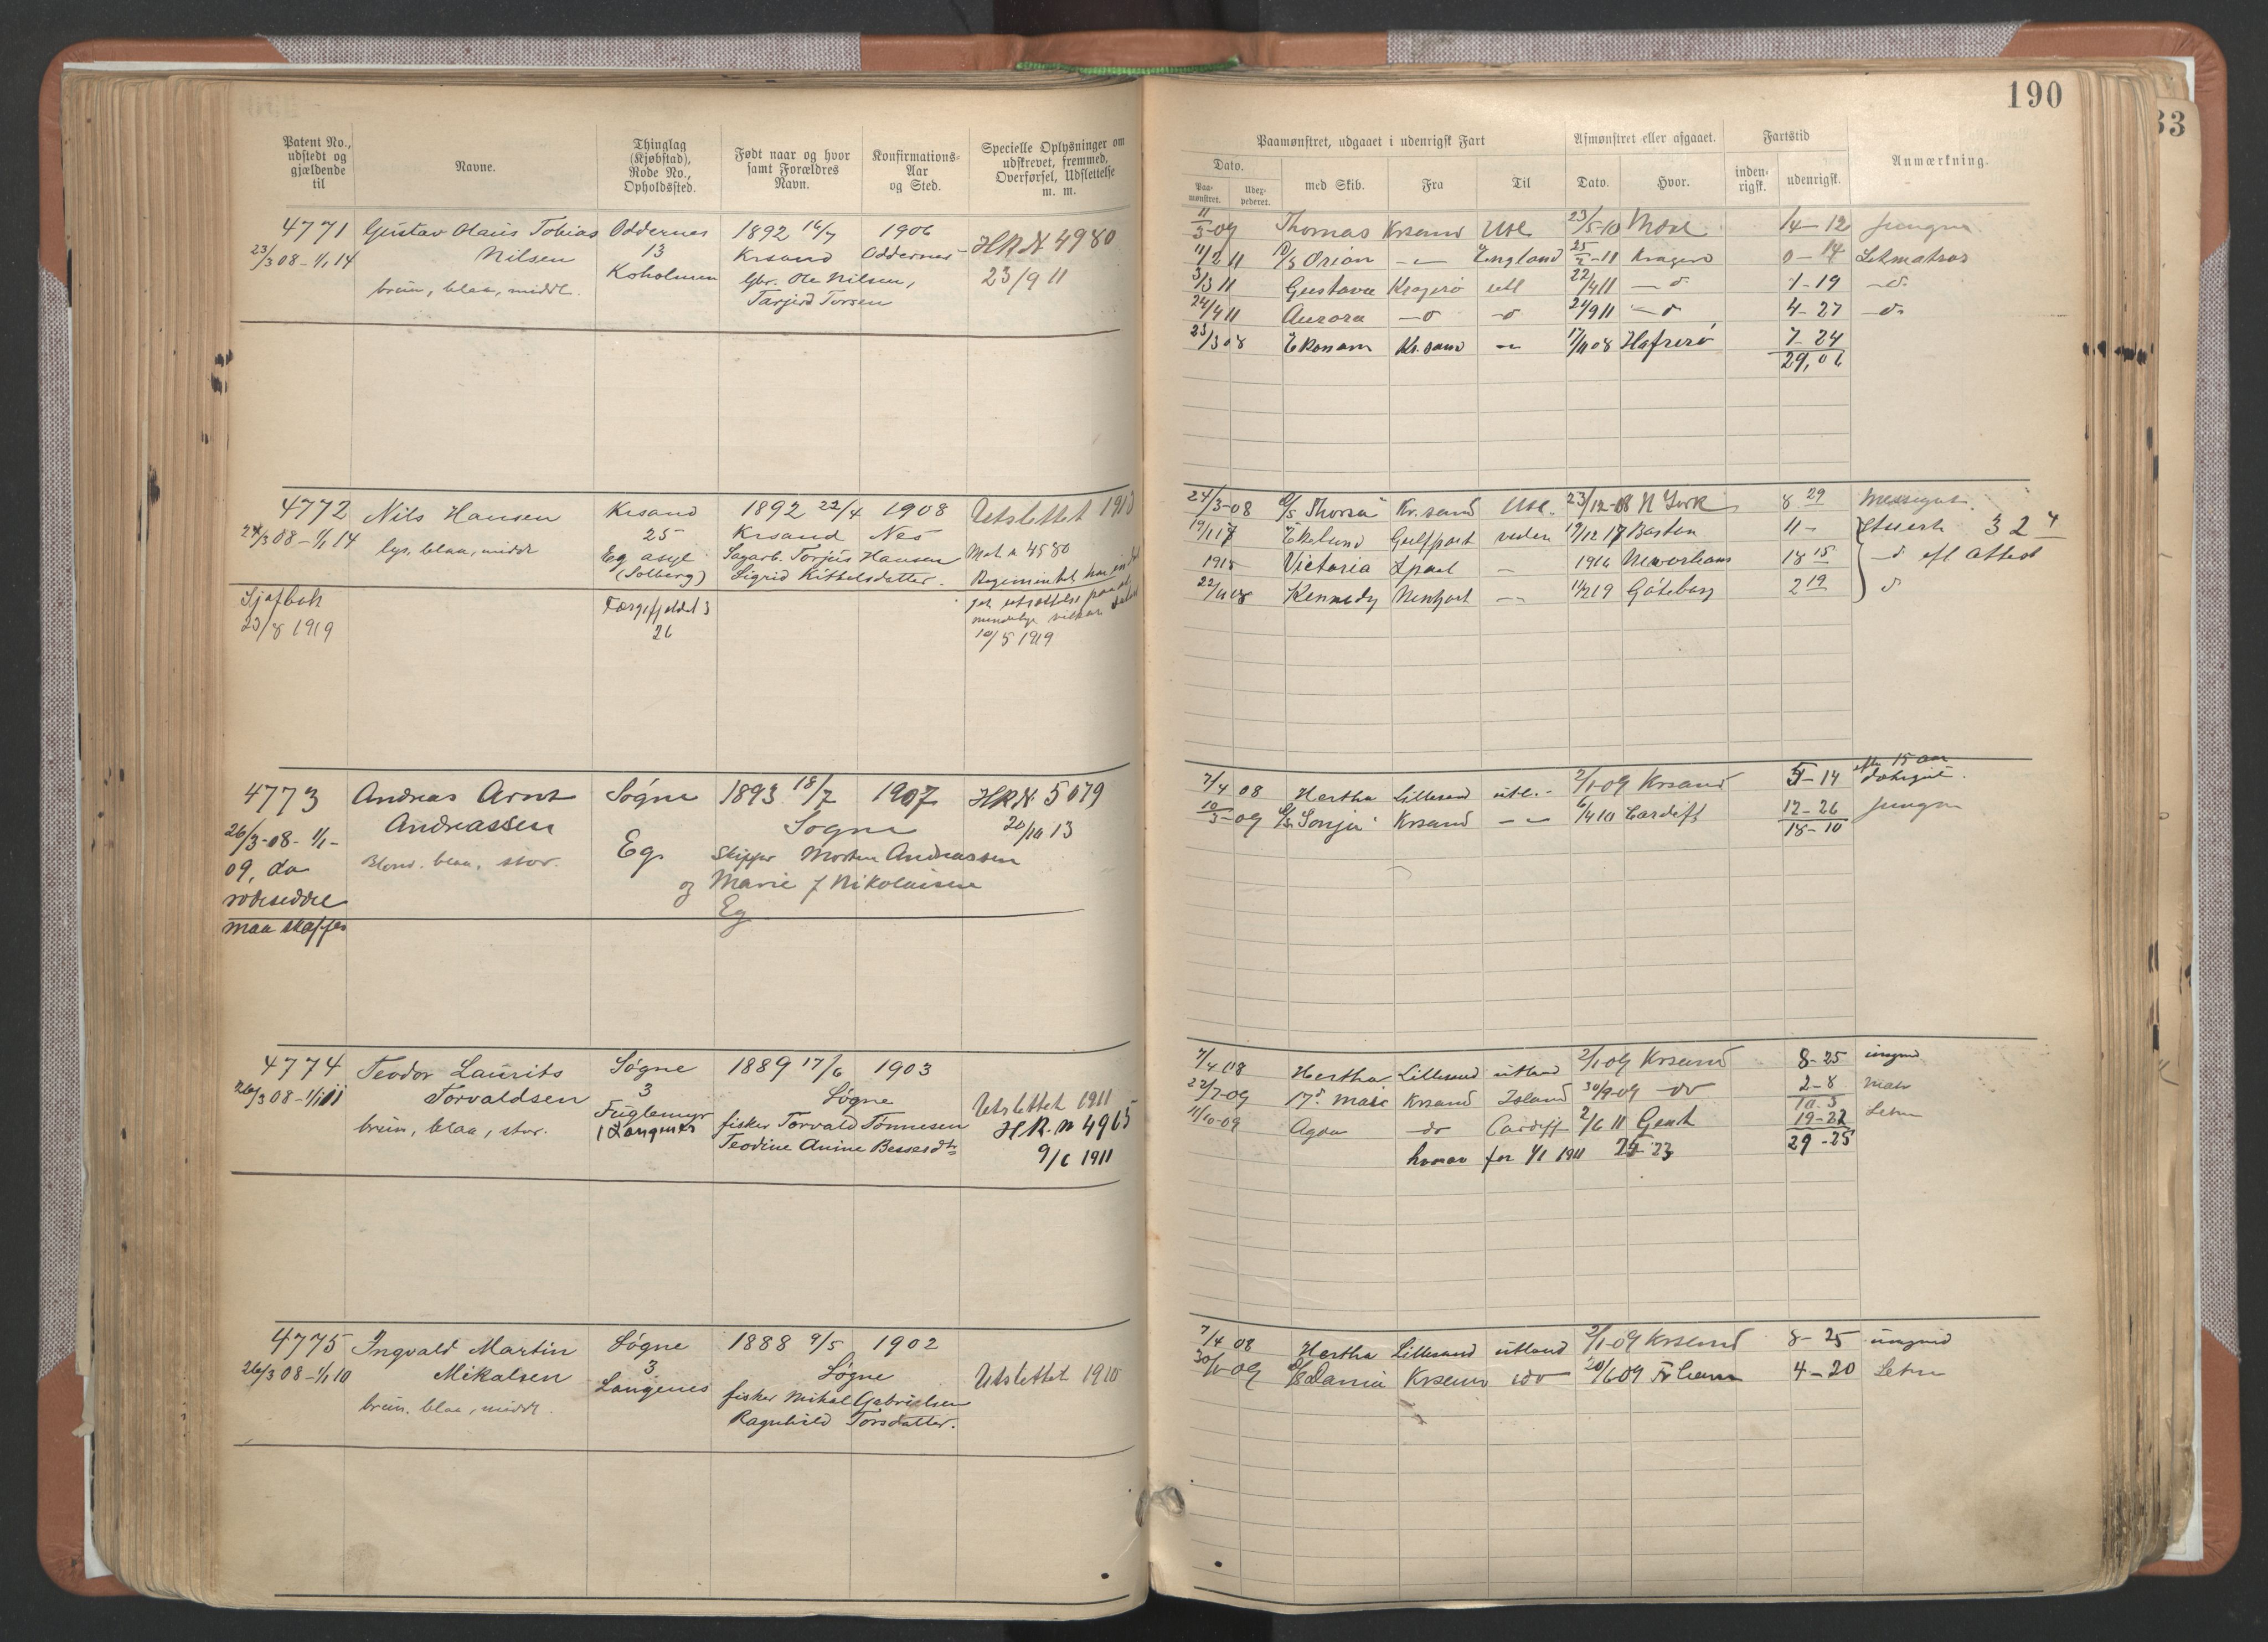 190
33
Patent No., udstedt og gjældende til
Navne.
Thinglag (Kjøbstad), Rode No., Opholdssted.
Født naar og hvor samt Forældres Navn.
Konfirmations-Aar og Sted.
Specielle Oplysninger om udskrevet, fremmed, Overførsel, Udslettelse m. m.
Paamønstret, udgaaet i udenrigsk Fart
Afmønstret eller afgaaet.
Fartstid
Anmærkning.
Dato.
Paa-mønstret.
med Skib.
Fra
Til
Dato.
Hvor.
inden-rigsk.
udenrigsk.
4771 Gustav Olaus Tobias Oddernes 1892 16/7 1906
23/3 08 – 1/1 14 Nilsen 13 Krsand Oddernes HR N 4980
brun, blaa, middl. Koholmen Gbr. Ole Nilsen, 23/9 11
Tarjerd Torsen
11/3-09 Thomas Krsand Utl 23/5-10 14–12 Jungm
11/2 11 Orion England 25/2-11 Kragerø 0–14 Letmatros
3/3 11 Gustava Kragerø utl 22/4 11 –d 1–19 –d–
24/4 11 Aurora –o –o 21/9 11 –d 4–27 –d–
23/3 08 Ekonom Kr.sand 17/11 08 7–24
29,06
4772 Nils Hansen Krsand 1892 22/4 1908 Utslettet 1913
24/3 08 – 1/1 14 lys, blaa, middl 25 Krsand Nes
Eg asyl Sagarb. Torjus Hansen
(Solberg) Sigrid Kittelsdatter.
Sjøfbok
23/8 1919
26
10/5 1919
24/3-08 D/S Thorsa Kr.sand Utl. 23/12-08 N York 8 29
19/1 17 Ekelund Gulfport 19/12 17 Boston 11– 3 2 4
1915 Victoria 1916 18 15 –d efl Attest
Kennedy Göteborg 2 19 d
4773 Andreas Arnt Søgne 1893 18/7 1907 HRN. 5079
26/3-08 – 1/1- Andreassen Søgne 20/10 13
09, da Blond. blaa, stor. Eg. Skipper Morten Andreassen
rodeseddel og Marie f Nikolaisen
maa skaffes Eg
7/4 08 Hertha Lillesand utl. 2/1-09 Krsand 5–14 eftr 15 aar
10/3-09 D/S Sonja Krsand 6/4 10 Cardiff 12–26 Jungm
18–10
4774 Teodor Laurits Søgne 1889 17/6 1903
26/3 08 – 1/1 11 Torvaldsen 3 Søgne Utslettet 1911
brun, blaa, stor. Fuglemyr fisker Torvald Tønnesen H.R. N 4965
Teodine Anine 9/6 1911
7/4 08 Hertha Lillesand utland 2/1-09 Krsand 8–25
22/7-09 17de Mai Krsand Island 30/9-09 –do 2–8
10 3
11/10-09 Agda –do Cardiff 2/6 11 Gent 19–22 Letm
29–25
hvorav før 1/1 1911
4775 Ingvald Martin Søgne 1888 9/5 1902
26/3 08 – 1/1 10 Mikalsen 3 Søgne Utslettet 1910
brun. blaa, middl. Langenes fisker Mikal Gabrielsen
Ragnhild Torsdatter.
7/4 08 Hertha Lillesand utland 2/1-09 Krsand 8–25
Dania Krsand 4–20 Letm